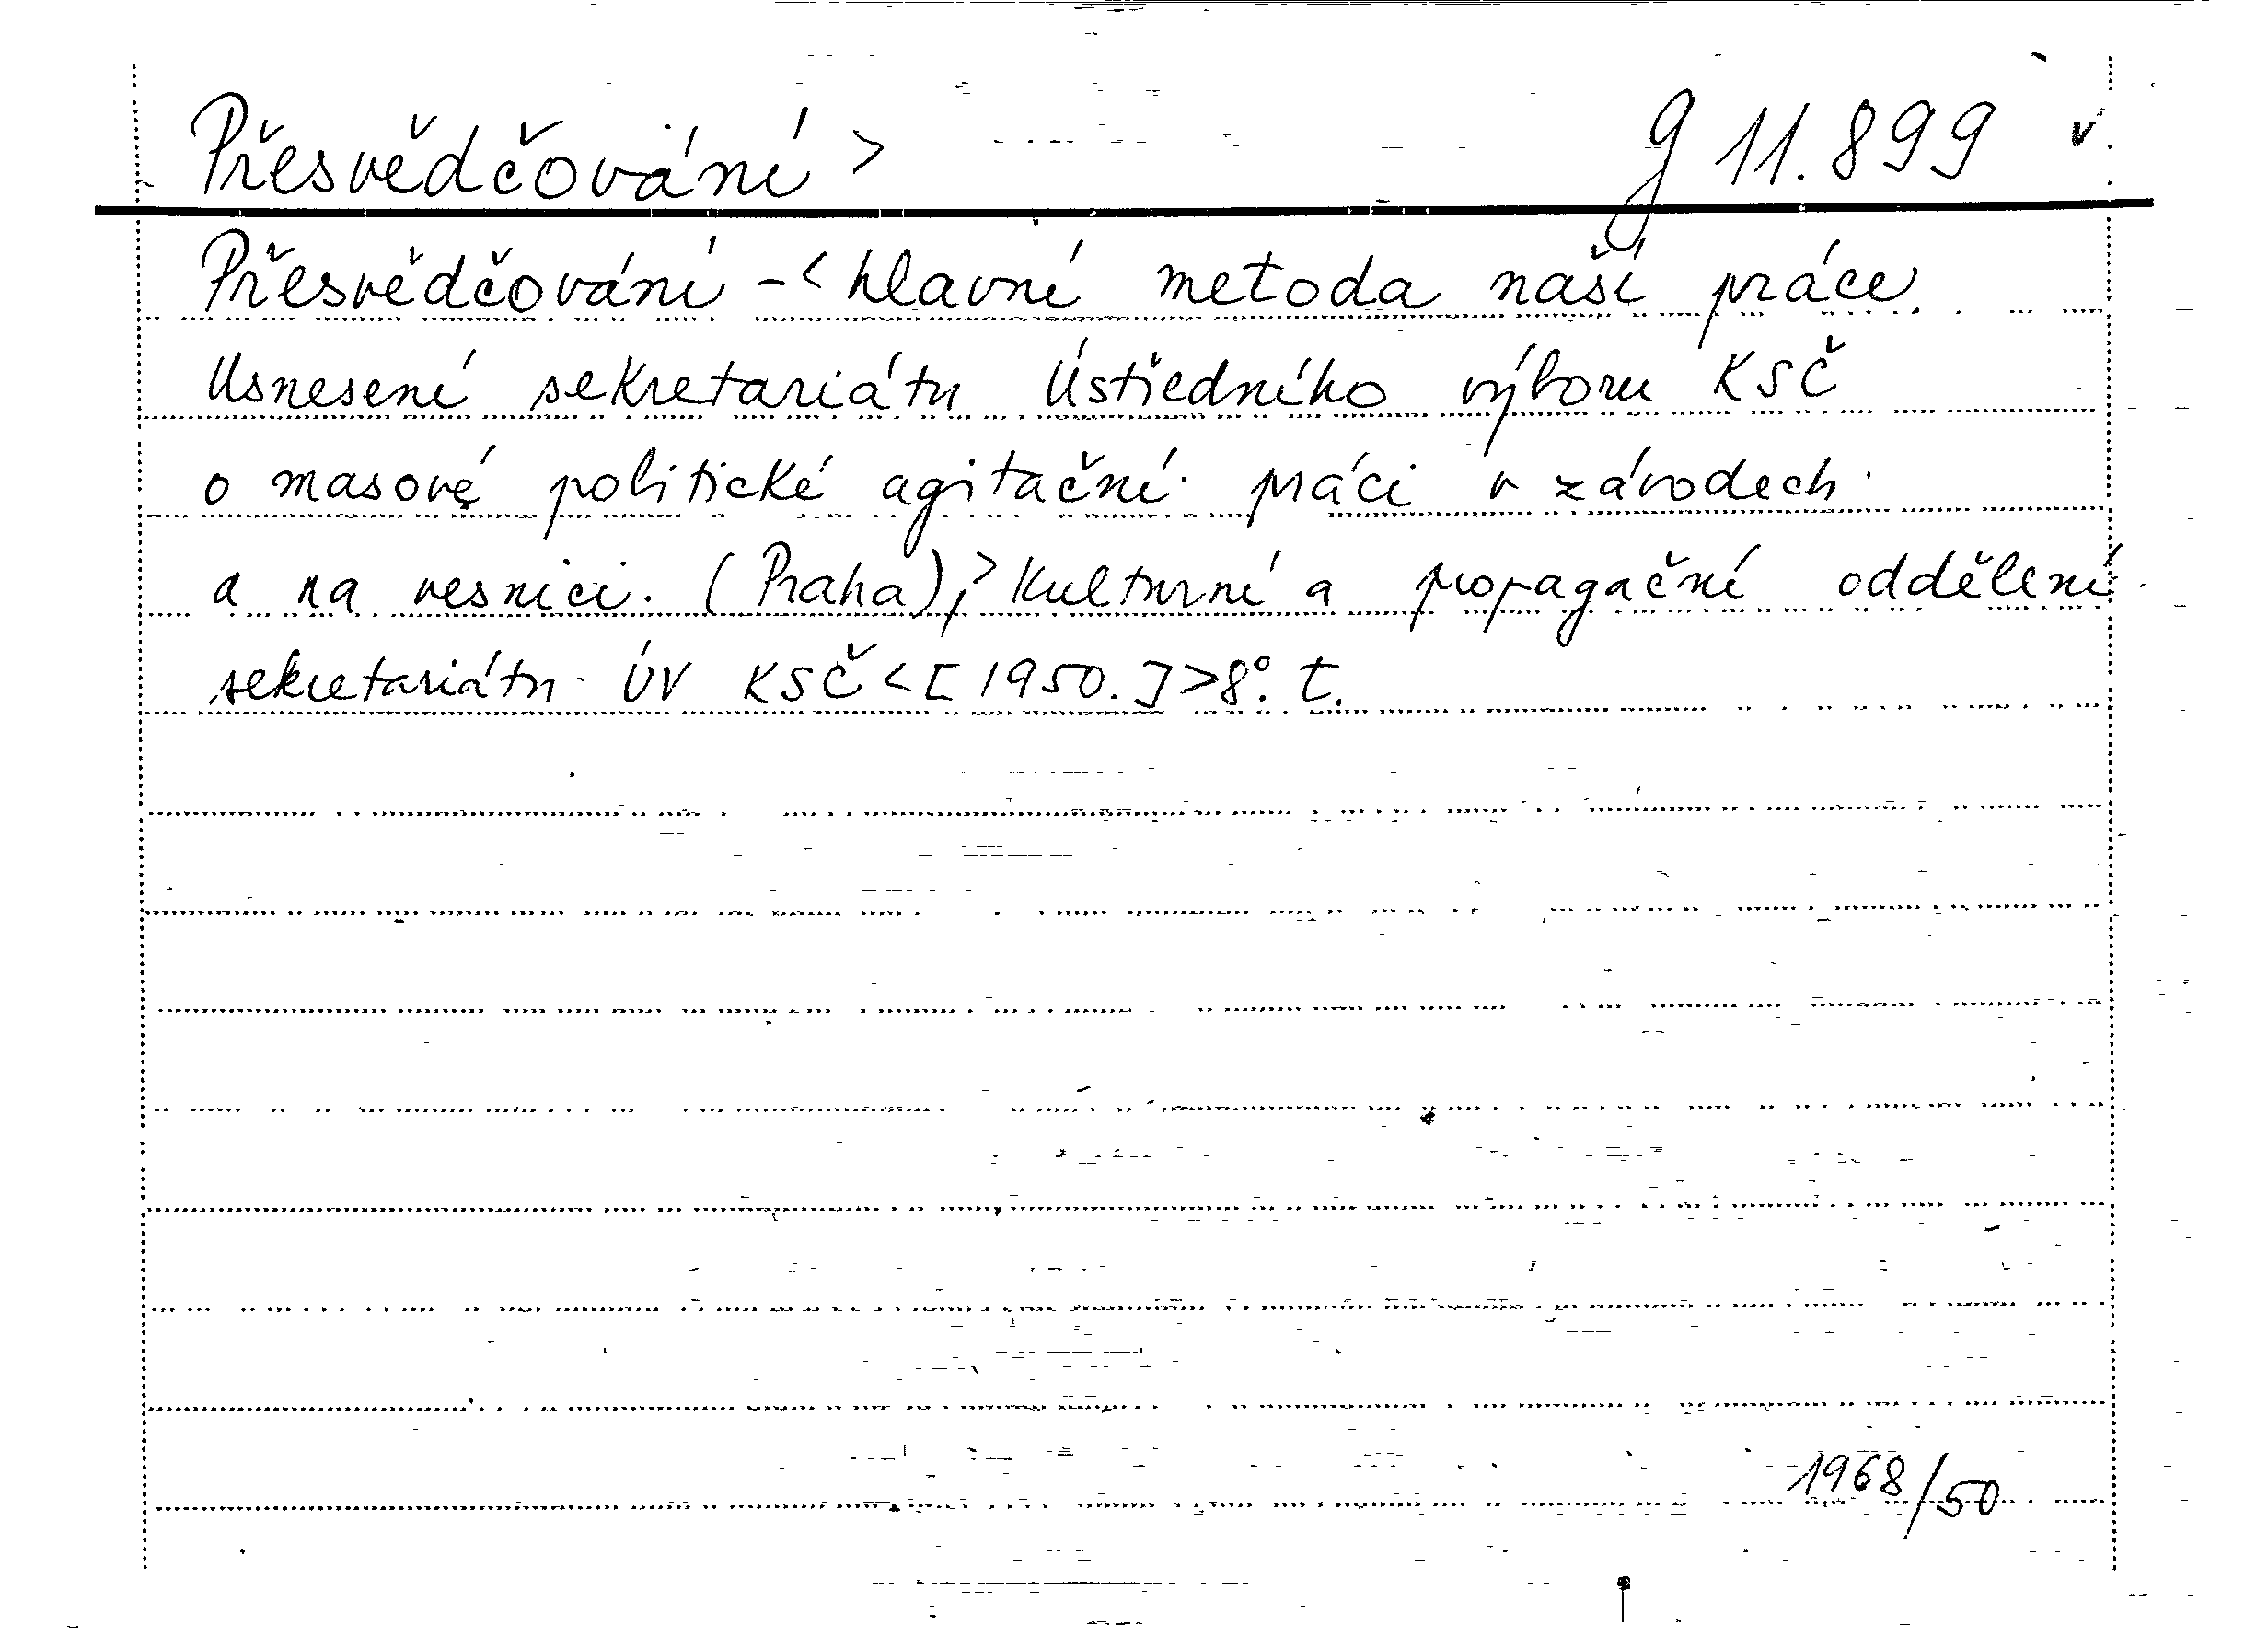 Přesvědčování > g 11.899 v
Přesvědčování -< hlavní metoda naší práce.
Usnesení sekretariátu Ústředního výboru KSČ
o masové politické agitační práci v závodech
a na vesnici. (Praha),> Kulturní a propagační oddělení
sekretariátu ÚV KSČ <[1950.]> 8°. t.
1968/50